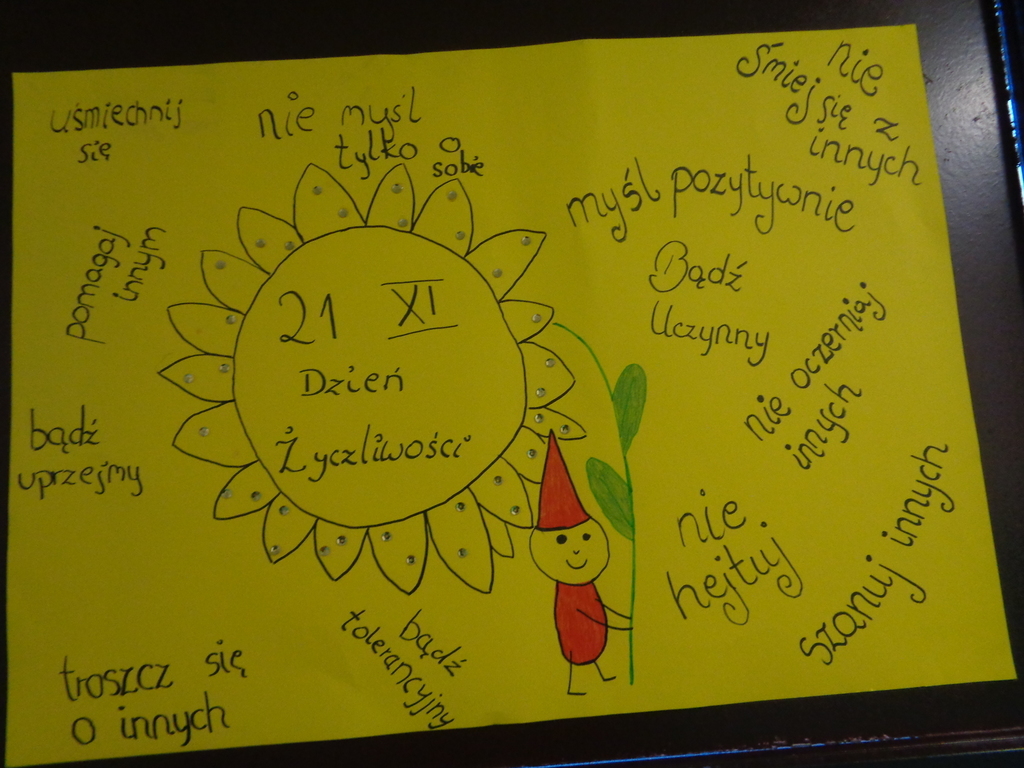 uśmiechnij
się
nie myśl
tylko o
sobie
nie
śmiej się z
innych
myśl pozytywnie
Bądź
Uczynny
pomagaj
innym
21 XI
Dzień
Życzliwości
nie oczerniaj
innych
bądź
uprzejmy
nie
hejtuj
szanuj innych
troszcz się
o innych
bądź
tolerancyjny